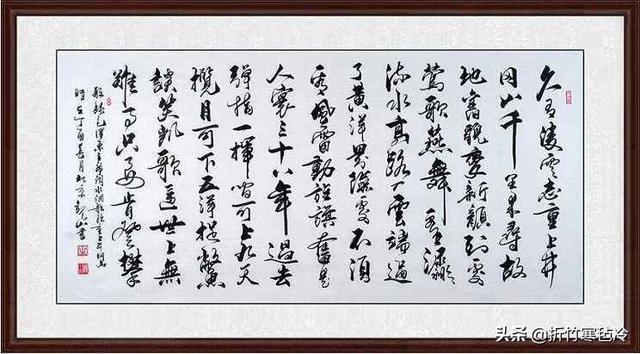 久有凌雲志重上井
岡山千里來尋故
地舊貌變新顏到處
鶯歌燕舞更有潺潺
流水高路入雲端過
了黃洋界險處不須
看風雷動旌旗奮是
人寰三十八年過去
彈指一揮間可上九天
攬月可下五洋捉鱉
談笑凱歌還世上無
難事只要肯登攀
毛澤東主席詞水調歌頭重上井岡山
時在丁酉月北京
头条@折竹寒毡冷